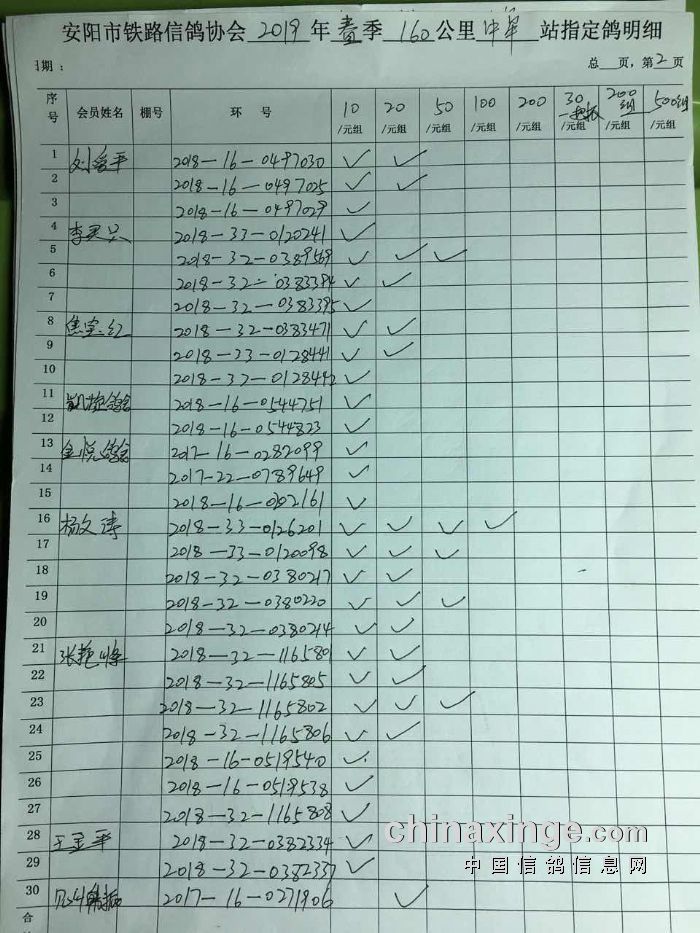 安阳市铁路信鸽协会 2019 年 春季 160 公里 站指定鸽明细
日期： 总 页，第 2 页
序号 会员姓名 棚号 环 号 10/元组 20/元组 50/元组 100/元组 200/元组 30/元组 200组/元组 500组/元组
1 2018-16-0497030 ✓ ✓
2 2018-16-0497025 ✓ ✓
3 2018-16-0497029 ✓
4 2018-33-0120241 ✓
5 2018-32-0389569 ✓ ✓ ✓
6 2018-32-0383394 ✓ ✓
7 2018-32-0383395 ✓
8 2018-32-0383471 ✓ ✓
9 2018-33-0128441 ✓ ✓
10 2018-32-0128442 ✓
11 凯旋鸽舍 2018-16-0544751 ✓
12 2018-16-0544823 ✓
13 金悦鸽舍 2017-16-0282099 ✓
14 2017-22-0789649 ✓
15 2018-16-0302161 ✓
16 杨文涛 2018-33-0126201 ✓ ✓ ✓ ✓
17 2018-33-0120098 ✓ ✓ ✓
18 2018-32-0380217 ✓ ✓
19 2018-32-0380220 ✓ ✓ ✓
20 2018-32-0380214 ✓ ✓
21 2018-32-1165801 ✓ ✓
22 2018-32-1165805 ✓ ✓
23 2018-32-1165802 ✓ ✓ ✓
24 2018-32-1165806 ✓ ✓
25 2018-16-0519540 ✓
26 2018-16-0519538 ✓
27 2018-32-1165808 ✓
28 2018-32-0382334 ✓ ✓
29 2018-32-0382337 ✓
30 2017-16-0271906 ✓
合
chinaxinge.com
中国信鸽信息网